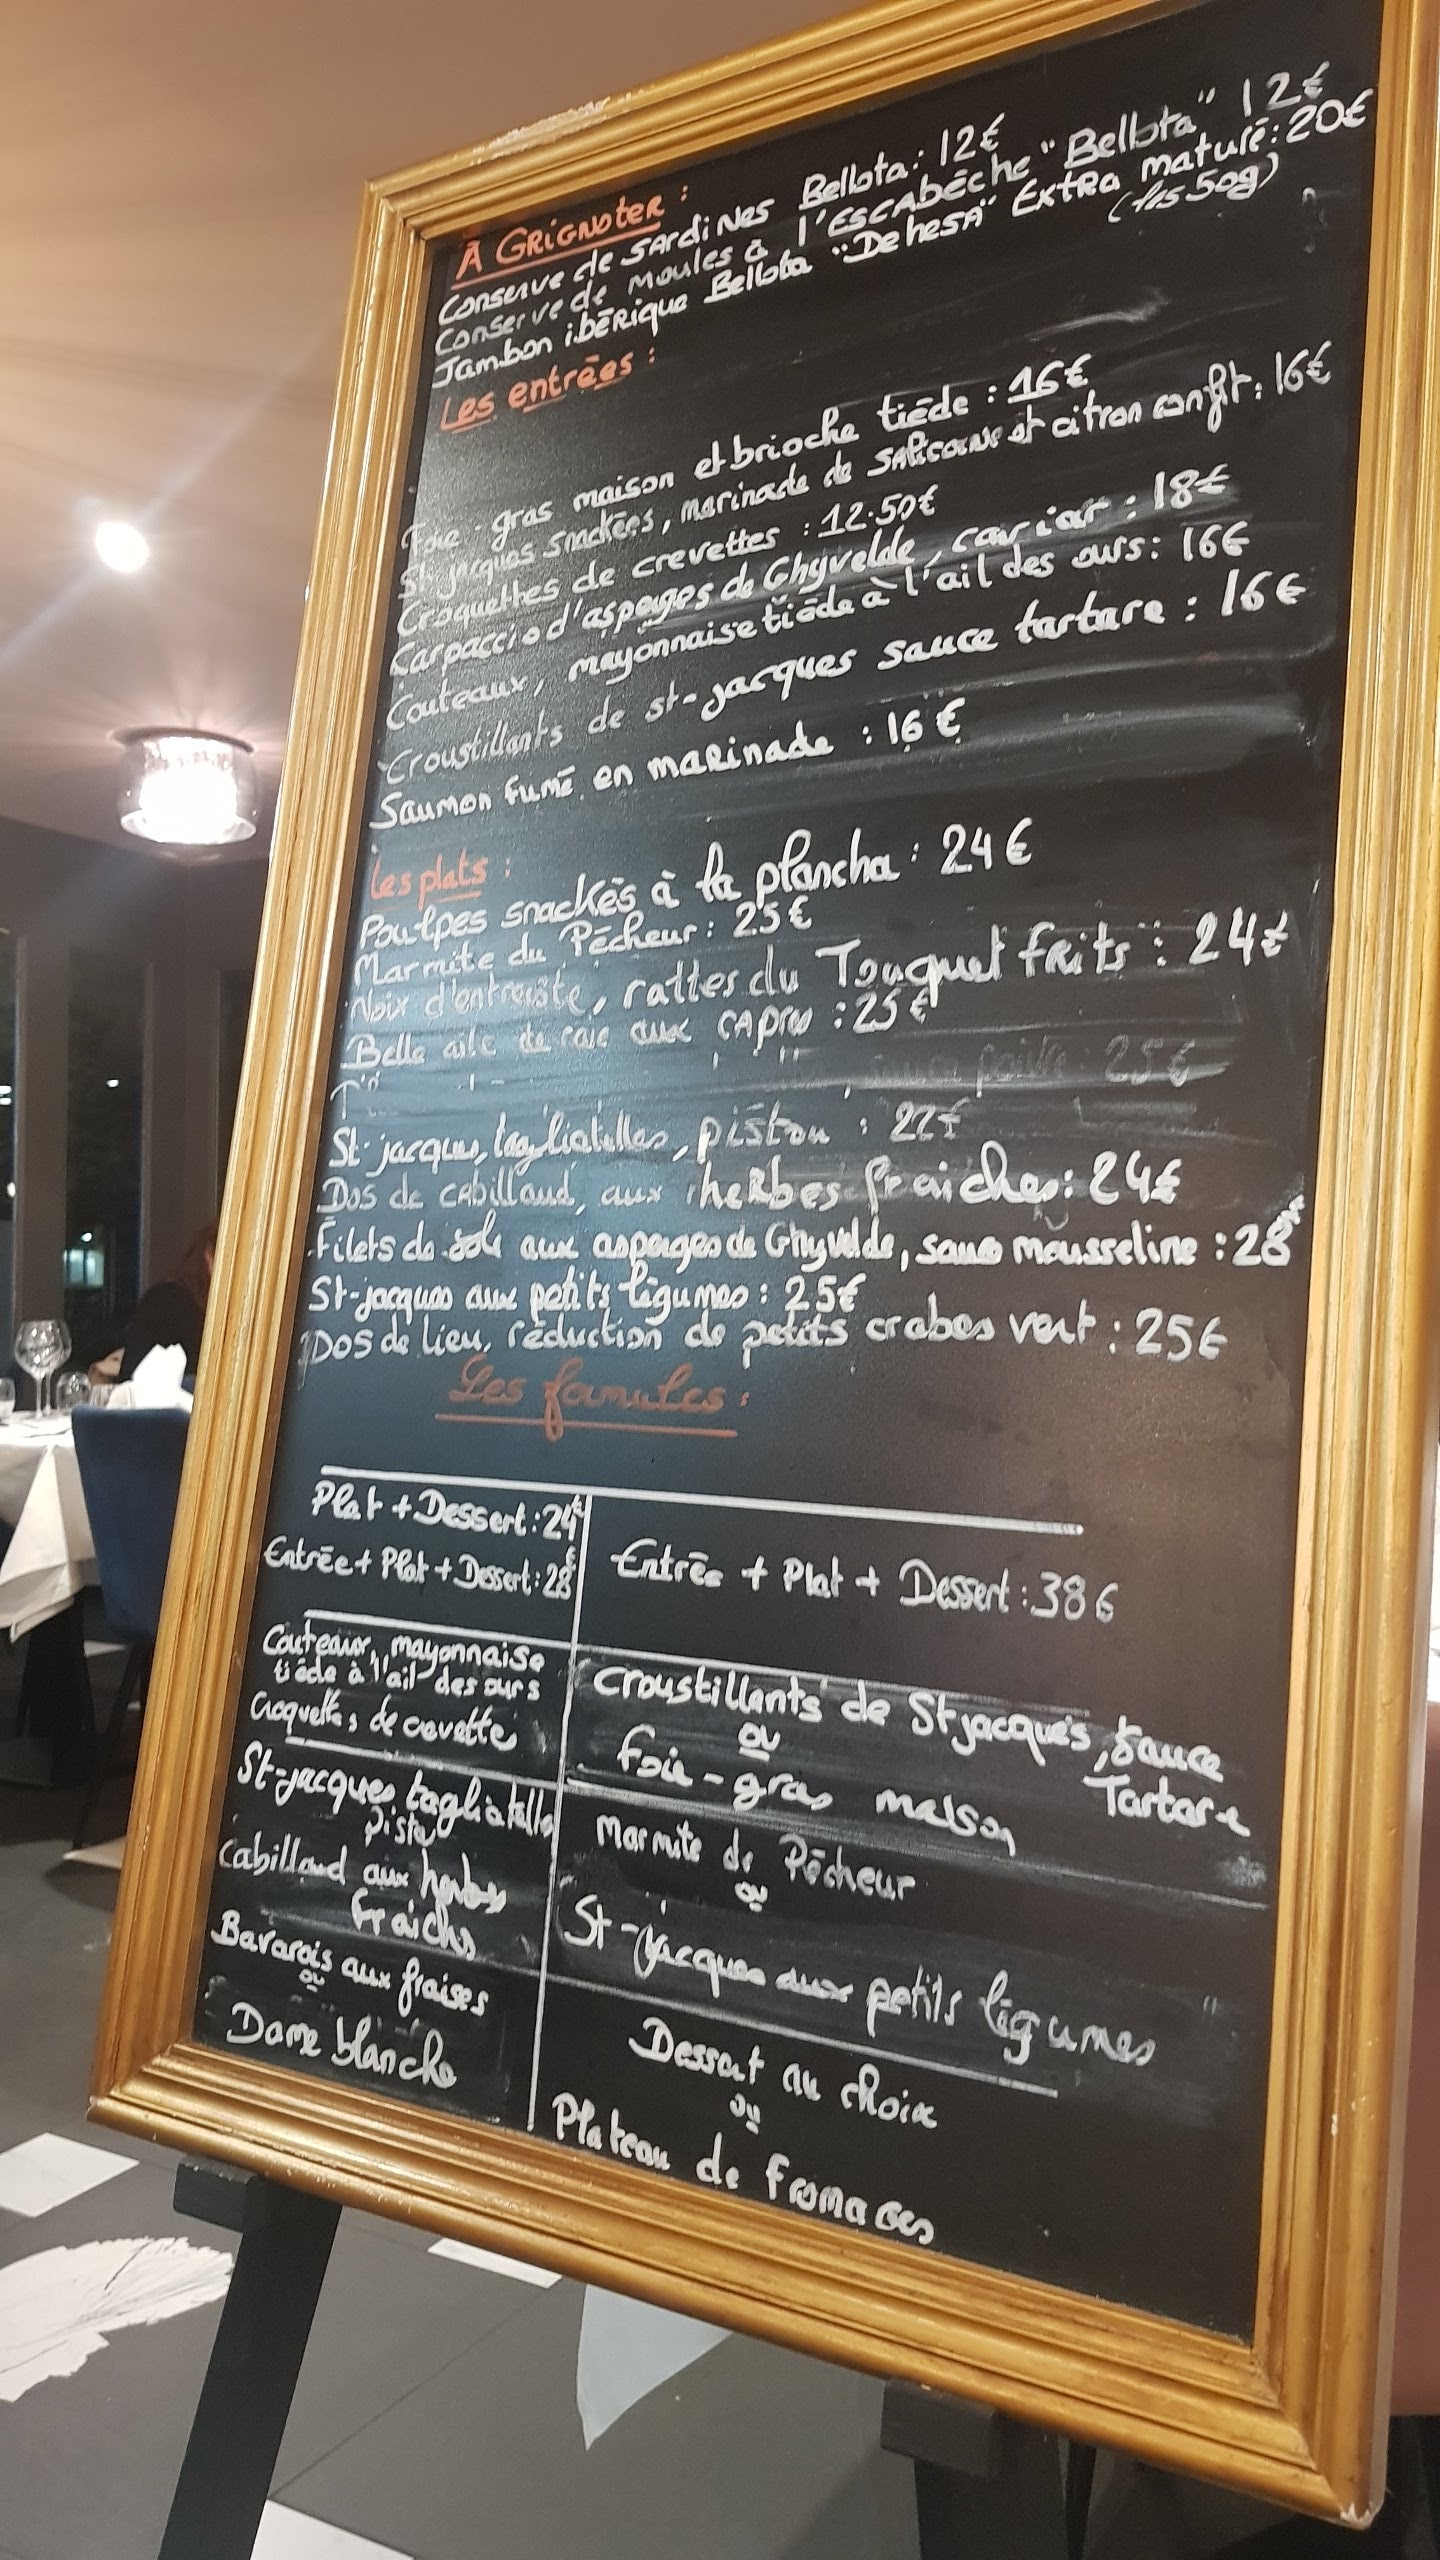 A GRIGNOTER :
Conserve de SARDINES Bellota : 12€
Conserve de moules à l'ESCABÈCHE "Bellota" 12€
Jambon ibérique Bellota "Dehesa" Extra maturé : 20€
(les 50g)
Les entrées :
Foie-gras maison et brioche tiède : 16€
St-jacques snackées, marinade de SALICORNE et citron confit : 16€
Croquettes de crevettes : 12.50€
Carpaccio d'asperges de Ghyvelde, caviar : 18€
Couteaux, mayonnaise tiède à l'ail des ours : 16€
Croustillants de st-jacques sauce tartare : 16€
Saumon fumé en marinade : 16€
Les plats :
Poulpes snackés à la plancha : 24€
Marmite du Pêcheur : 25€
Noix d'entrecôte, rattes du Touquet frits : 24€
Belle aile de raie aux câpres : 25€
25€
St-jacques, tagliatelles, pistou : 22€
Dos de cabillaud, aux herbes fraiches : 24€
Filets de sole aux asperges de Ghyvelde, sauce mousseline : 28
St-jacques aux petits légumes : 25€
Dos de lieu, réduction de petits crabes vert : 25€
Les formules :
Plat + Dessert : 24€
Entrée + Plat + Dessert : 28€
Entrée + Plat + Dessert : 38€
Couteaux, mayonnaise
tiède à l'ail des ours
Croquettes de crevette
Croustillants de St jacques, sauce
Tartare
ou
foie-gras maison
St-jacques tagliatelle
Cabillaud aux herbes
fraiches
Marmite du Pêcheur
ou
St-jacques aux petits légumes
Bavarois aux fraises
ou
Dame blanche
Dessert au choix
ou
Plateau de fromages